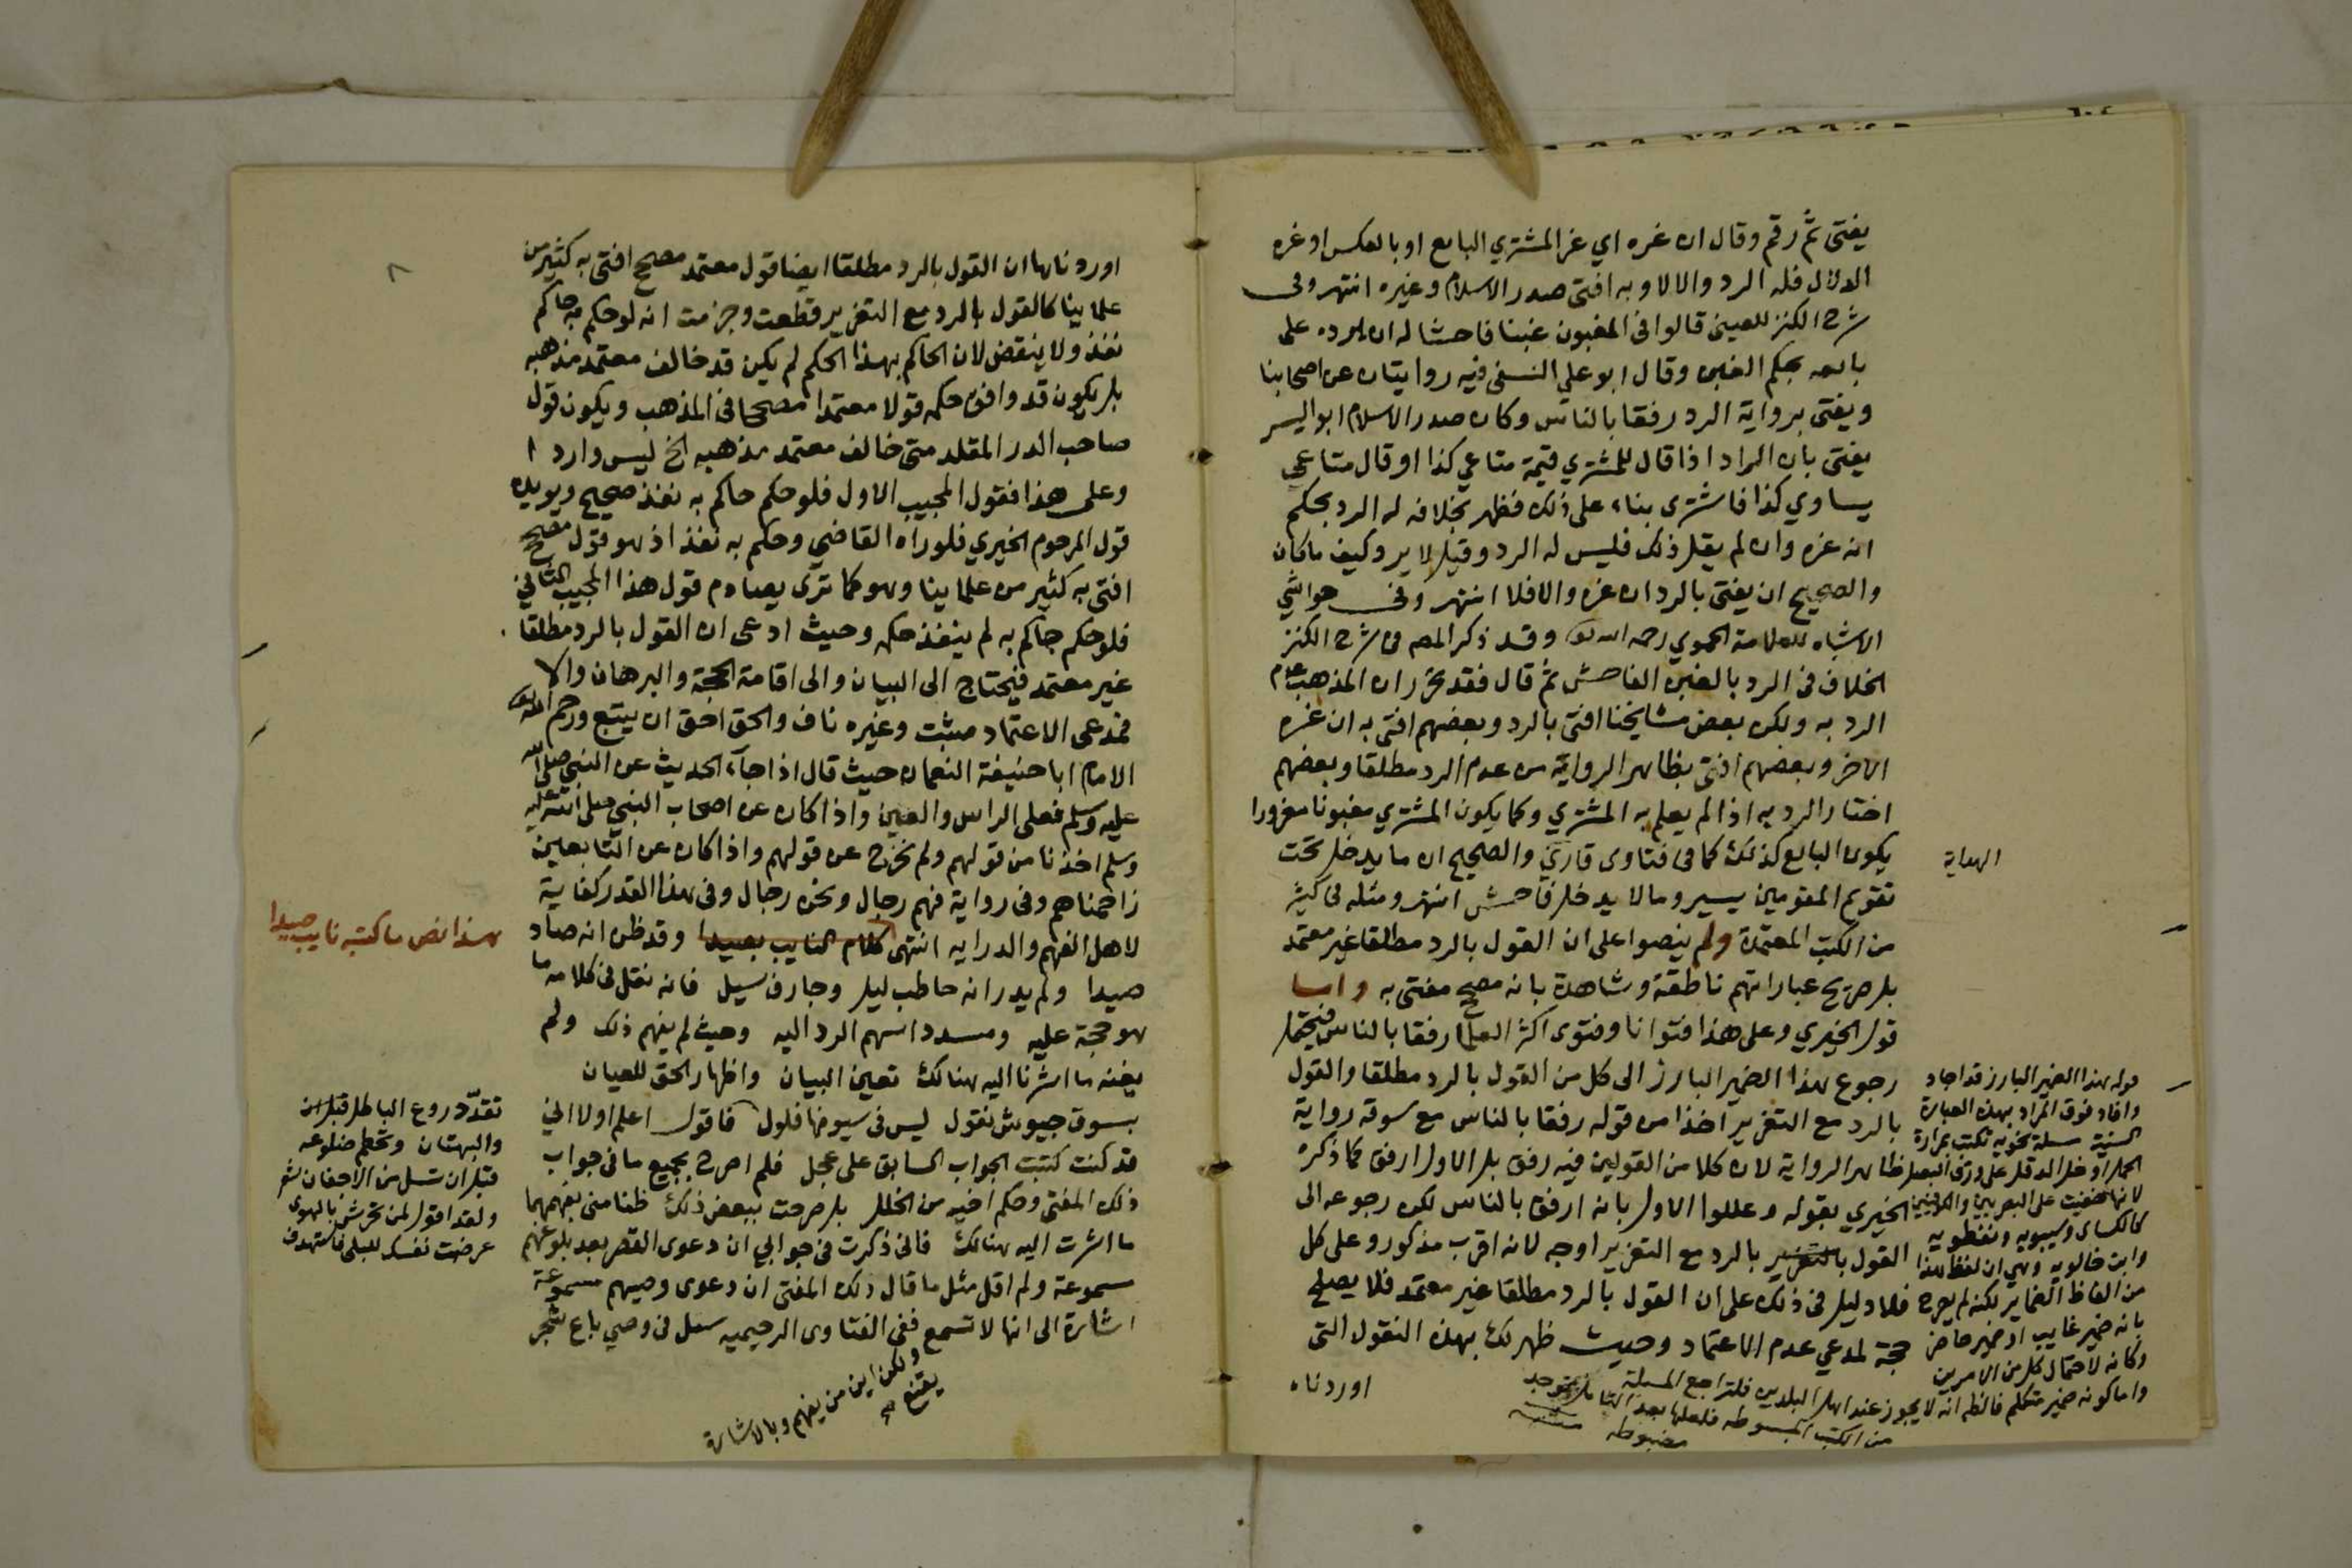 يفتى ثم رقم وقال ان غره اي غر المشتري البايع او بالعكس او غره
الدلال فله الرد والا لا وبه افتى صدر الاسلام وغيره انتهر وفى
شرح الكنز للعينى قالوا فى المغبون غبنا فاحشا له ان يرده على
بايعه بحكم الغبن وقال ابو علي النسفى فيه روايتان عن اصحابنا
ويفتى برواية الرد رفقا بالناس وكان صدر الاسلام ابو اليسر
يفتى بان الراد اذا قال للمشتري قيمة متاعي كذا او قال متاعي
يساوي كذا فاشترى بناء على ذلك فظهر بخلافه له الرد بحكم
انه غره وان لم يقل ذلك فليس له الرد وقيل لا يرد كيف ما كان
والصحيح ان يفتى بالرد ان غره والا فلا انتهر وفى حواشي
الاشباه للعلامة الحموي رحمه الله تعالى وقد ذكر المص فى شرح الكنز
الخلاف فى الرد بالغبن الفاحش ثم قال فقد تحرر ان المذهب عدم
الرد به ولكن بعض مشايخنا افتى بالرد وبعضهم افتى به ان غره
الاخر وبعضهم افتى بظاهر الرواية من عدم الرد مطلقا وبعضهم
اختار الرد به اذا لم يعلم به المشتري وكما يكون المشتري مغبونا مغرورا
يكون البايع كذلك كما فى فتاوى قارئ والصحيح ان ما يدخل تحت
الهداية
تقويم المقومين يسير وما لا يدخل فاحش انتهر ومثله فى كثير
من الكتب المعتمدة ولم ينصوا على ان القول بالرد مطلقا غير معتمد
بل صريح عباراتهم ناطقة وشاهدة بانه مصحح مفتى به واما
قول الخيري وعلى هذا فتوانا وفتوى اكثر العلما رفقا بالناس فيحتمل
رجوع هذا الضمير البارز الى كل من القول بالرد مطلقا والقول
بالرد مع التغرير اخذا من قوله رفقا بالناس مع سوقه رواية
ظاهر الرواية لان كلا من القولين فيه رفق بل الاول ارفق كما ذكره
الخيري بقوله وعللوا الاول بانه ارفق بالناس لكن رجوعه الى
القول بالتغرير بالرد مع التغرير اوجه لانه اقرب مذكور وعلى كل
فلا دليل فى ذلك على ان القول بالرد مطلقا غير معتمد فلا يصلح
حجة لمدعي عدم الاعتماد وحيث ظهر لك بهذه النقول التى
اوردناه
قوله هذا الضمير البارز قد اجاد
وافاد فوق المراد بهذه العبارة
لانها خفيت على البصريين والكوفيين
كالكسائى وسيبويه ونفطويه
وابن خالويه وهي ان لفظ هذا
من الفاظ الضماير لكنه لم يصرح
بانه ضمير غايب او ضمير حاضر
وكانه لاحتمال كل من الامرين
واما كونه ضمير متكلم فالظاهر انه لا يجوز عند اهل البلدين فلتراجع المسئلة
من الكتب المبسوطه فلعلها بعد التامل توجد
مضبوطه
٨
اوردناها ان القول بالرد مطلقا ايضا قول معتمد مصحح افتى به كثير من
علماينا كالقول بالرد مع التغرير قطعت وجزمت انه لو حكم به حاكم
نفذ ولا ينقض لان الحاكم بهذا الحكم لم يكن قد خالف معتمد مذهبه
بل يكون قد وافق حكمه قولا معتمدا مصححا فى المذهب ويكون قول
صاحب الدر المقلد متى خالف معتمد مذهبه الخ ليس واردا
وعلى هذا فقول المجيب الاول فلو حكم حاكم به نفذ صحيح ويويده
قول المرحوم الخيري فلو راه القاضي وحكم به نفذ اذ هو قول مصحح
افتى به كثير من علماينا وهو كما ترى يصادم قول هذا المجيب الثاني
فلو حكم حاكم به لم ينفذ حكمه وحيث ادعى ان القول بالرد مطلقا
غير معتمد فيحتاج الى البيان والى اقامة الحجة والبرهان والا
فمدعى الاعتماد مثبت وغيره ناف والحق احق ان يتبع ورحم الله تعالى
الامام ابا حنيفة النعمان حيث قال اذا جاء الحديث عن النبي صلى الله
عليه وسلم فعلى الراس والعين واذا كان عن اصحاب النبي صلى الله عليه
وسلم اخذنا من قولهم ولم نخرج عن قولهم واذا كان عن التابعين
زاحمناهم وفى رواية فهم رجال ونحن رجال وفى هذا القدر كفاية
لاهل الفهم والدرايه انتهى كلام النايب بصيدا وقد ظن انه صاد
هذا نص ما كتبه نايب صيدا
صيدا ولم يدر انه حاطب ليل وجارف سيل فانه نقل فى كلامه ما
هو حجة عليه ومسدد اسهم الرد اليه وحيث لم يفهم ذلك ولم
يغنه ما اشرنا اليه هنالك تعين البيان واظهار الحق للعيان
بسوق جيوش نقول ليس فى سيوفها فلول فاقول اعلم اولا اني
قد كنت كتبت الجواب السابق على عجل فلم اصرح بجميع ما فى جواب
ذلك المفتى وحكم اخيه من الخلل بل صرحت ببعض ذلك ظنا منى بفهمهما
ما اشرت اليه هنالك فانى ذكرت فى جوابي ان دعوى القصر بعد بلوغهم
مسموعة ولم اقل مثل ما قال ذلك المفتى ان دعوى وصيهم مسموعة
اشارة الى انها لا تسمع ففى الفتاوى الرحيميه سئل فى وصي باع شجر
ولكن اين من يفهم وبالاشارة
يقنع صح
تقدّ دروع الباطل قبل ان
والبهتان وتحطم ضلوعه
قبل ان تسل من الاجفان شعر
ولقد اقول لمن تحرش بالهوى
عرضت نفسك للبلى فاستهدف